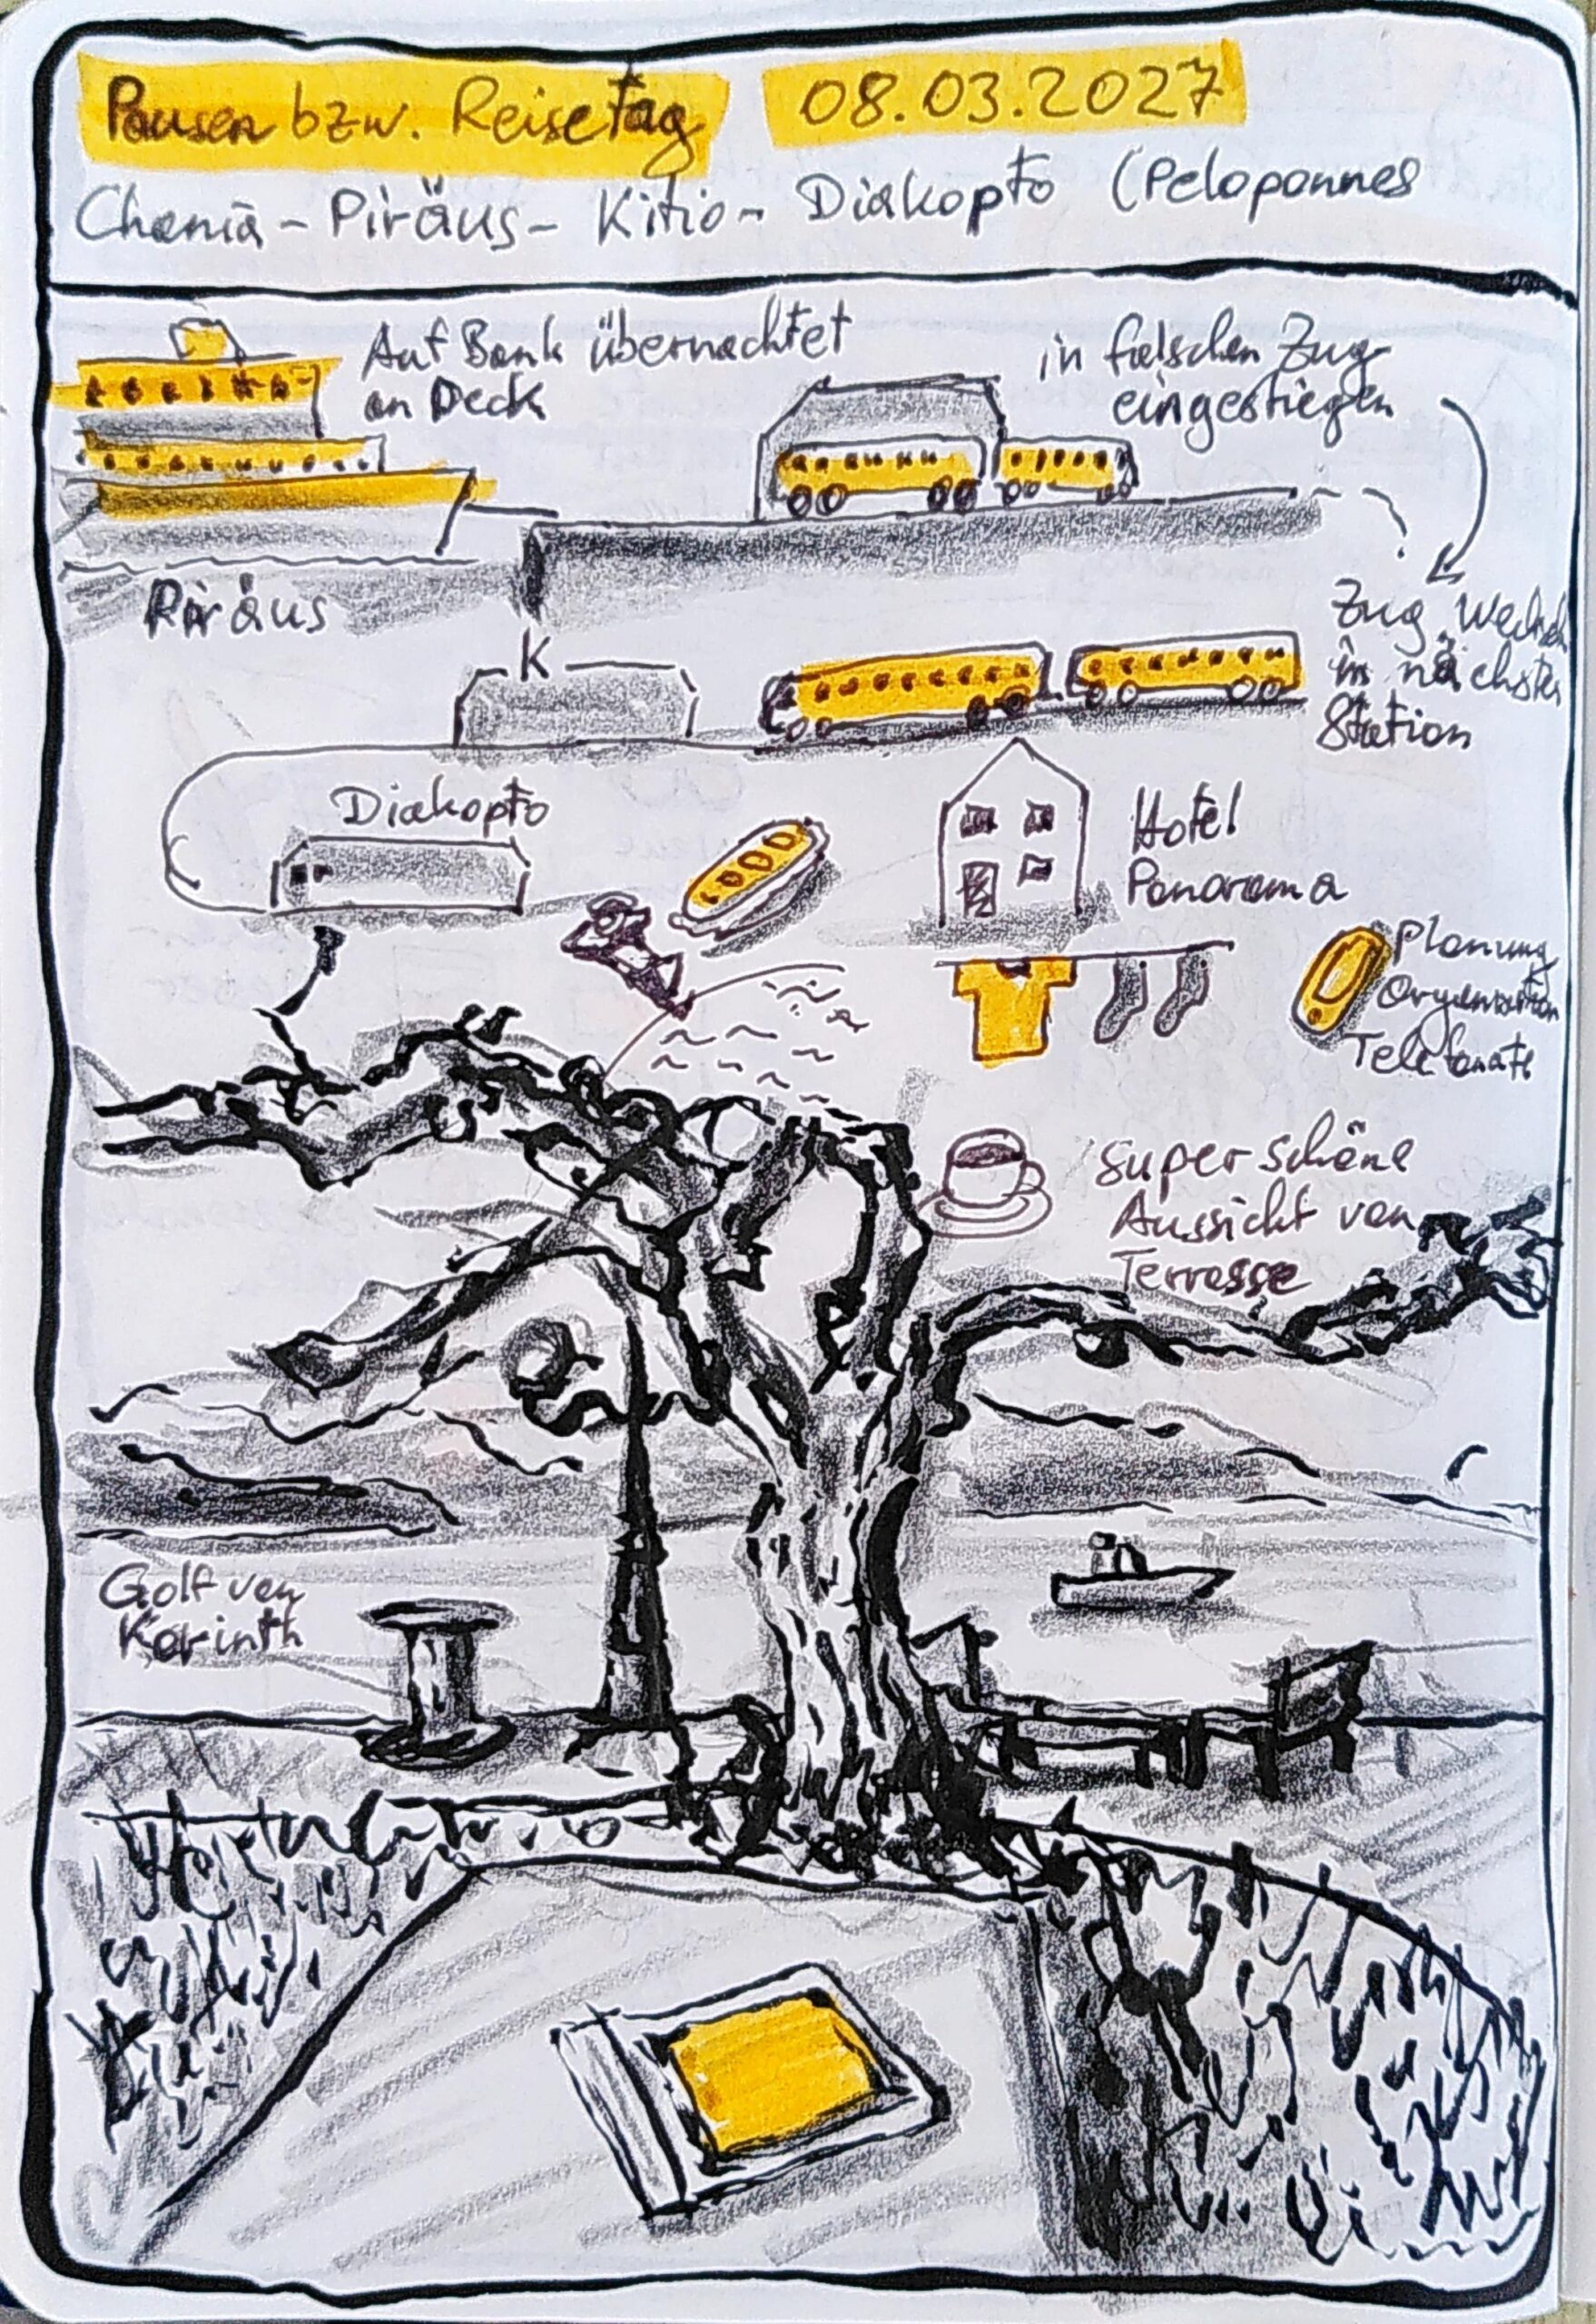 Pausen bzw. Reisetag 08.03.2027
Chania - Piräus - Kitio - Diakopto (Peloponnes
Auf Bank übernachtet
an Deck
in falschen Zug
eingestiegen
Piräus
Zug Wechsel
in nächster
Station
K
Diakopto
Hotel
Panorama
Planung
Organisation
Telefonate
super schöne
Aussicht von
Terrasse
Golf von
Korinth